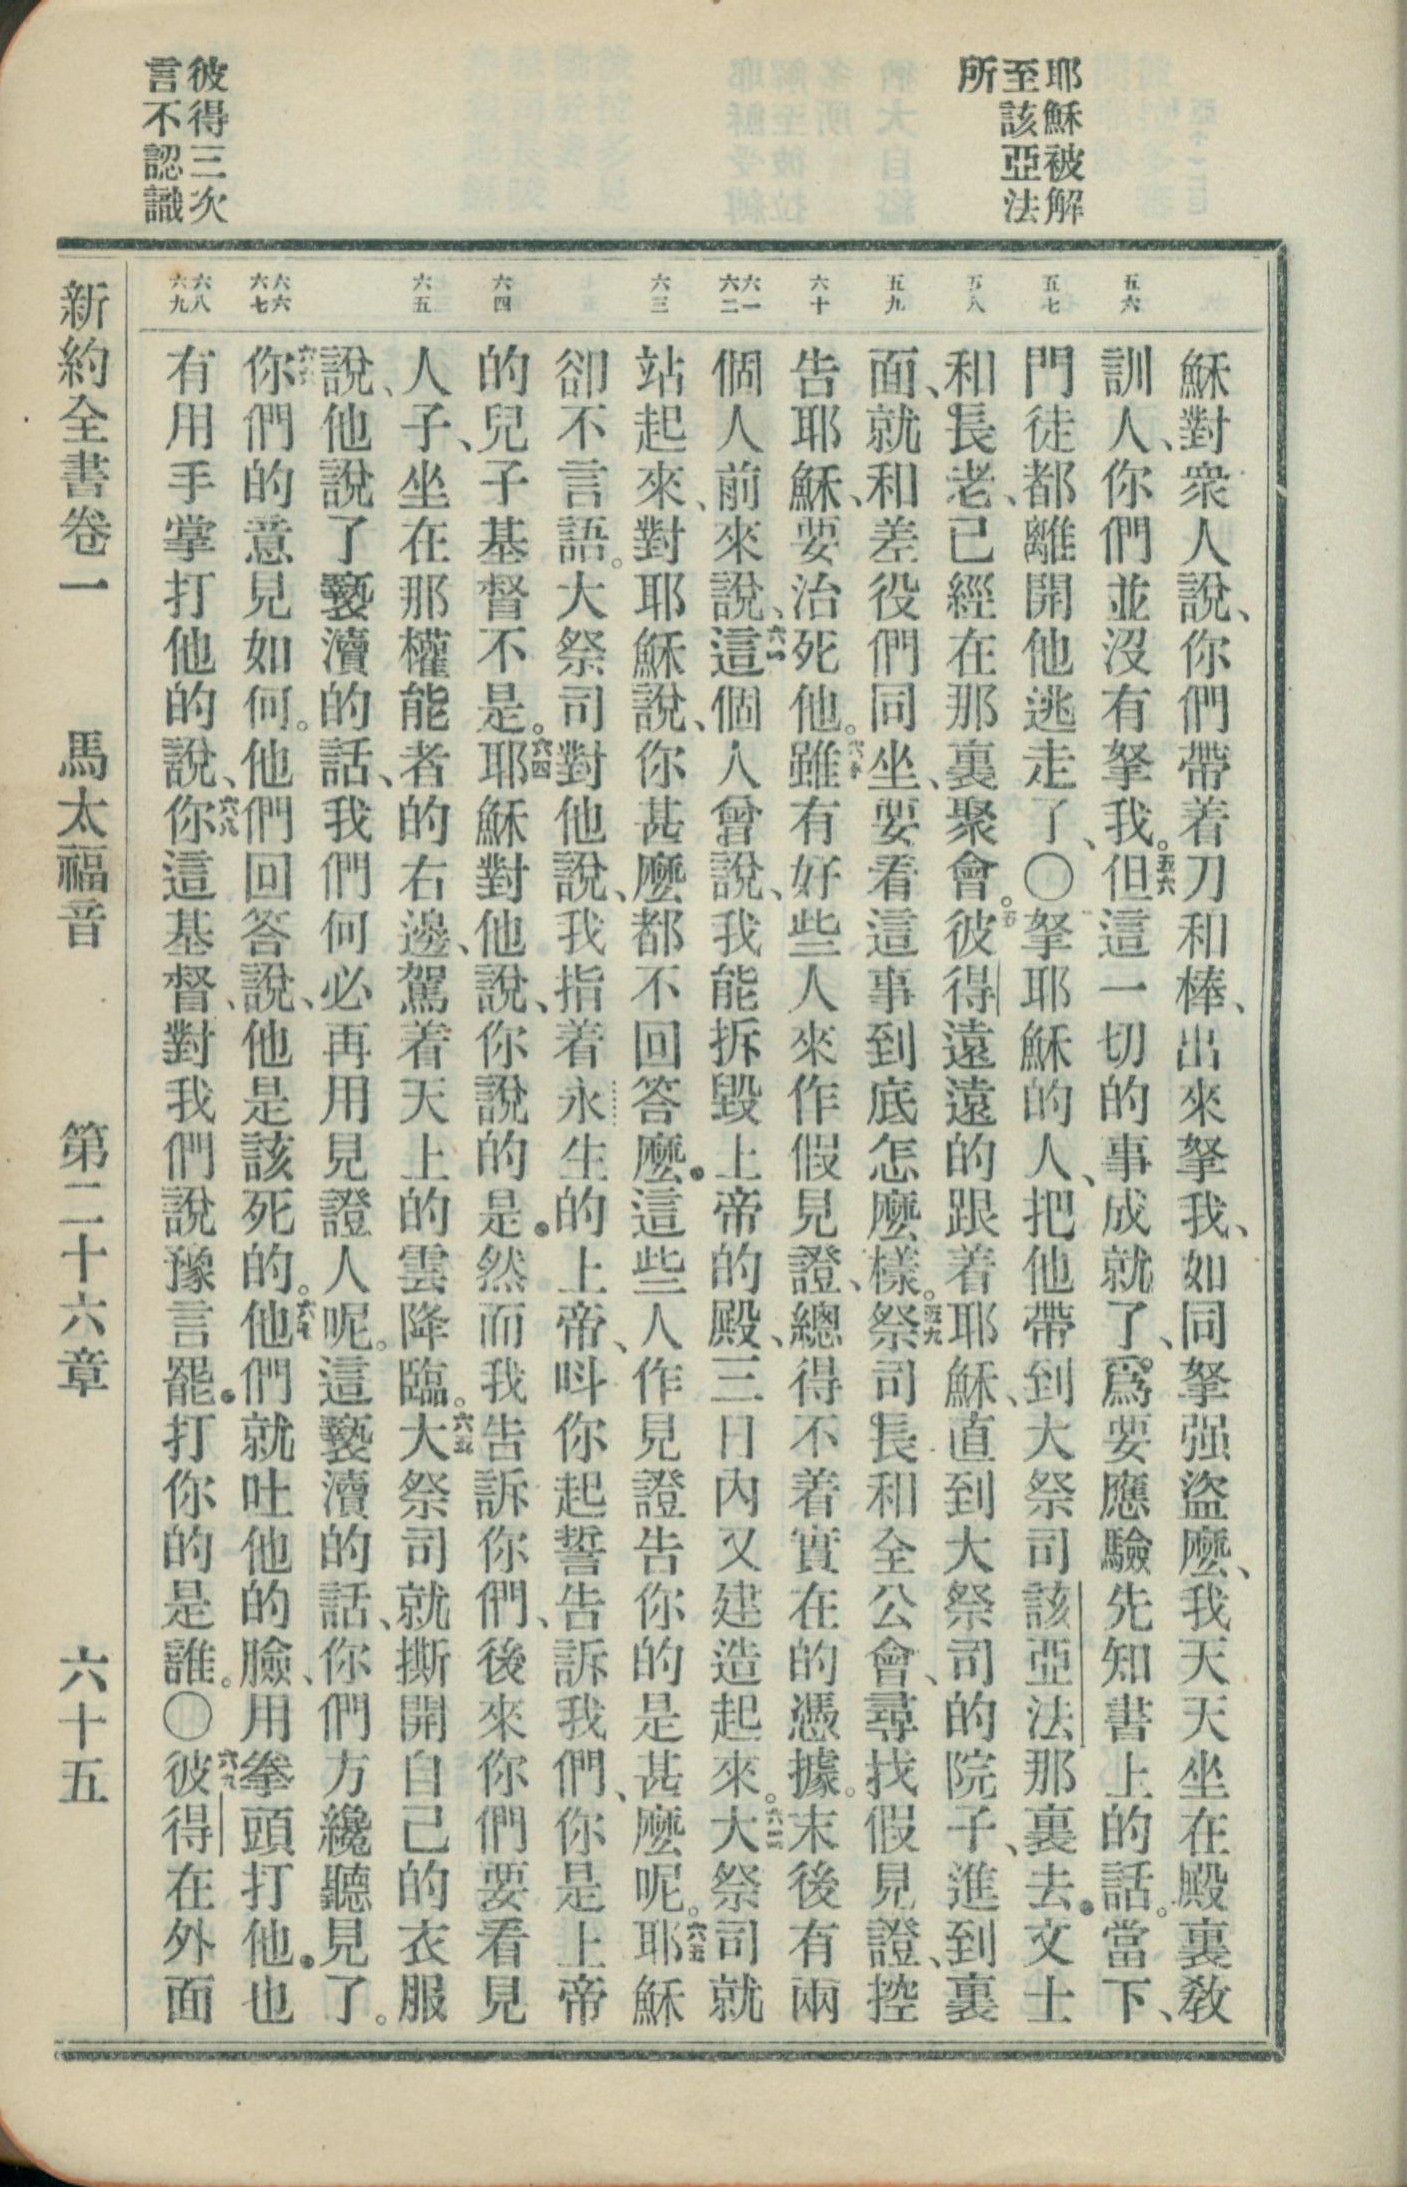 耶穌被解
至該亞法
所
彼得三次
言不認識
五六
五七
五八
五九
六十
六一
六二
六三
六四
六五
六六
六七
六八
六九
穌對衆人說、你們帶着刀和棒、出來拏我、如同拏强盜麼、我天天坐在殿裏敎
訓人、你們並沒有拏我。五六但這一切的事成就了、爲要應驗先知書上的話。當下、
門徒都離開他逃走了、〇拏耶穌的人、把他帶到大祭司該亞法那裏去．文士
和長老、已經在那裏聚會。彼得遠遠的跟着耶穌、直到大祭司的院子、進到裏
面、就和差役們同坐、要看這事到底怎麼樣。五九祭司長和全公會、尋找假見證、控
告耶穌、要治死他。六十雖有好些人來作假見證、總得不着實在的憑據。末後有兩
個人前來說、六一這個人曾說、我能拆毀上帝的殿、三日內又建造起來。六二大祭司就
站起來、對耶穌說、你甚麼都不回答麼．這些人作見證告你的是甚麼呢。六三耶穌
卻不言語。大祭司對他說、我指着永生的上帝、呌你起誓告訴我們、你是上帝
的兒子基督不是。六四耶穌對他說、你說的是．然而我告訴你們、後來你們要看見
人子、坐在那權能者的右邊、駕着天上的雲降臨。六五大祭司就撕開自己的衣服
說、他說了褻瀆的話、我們何必再用見證人呢。這褻瀆的話、你們方纔聽見了。
六六你們的意見如何。他們回答說、他是該死的。六七他們就吐他的臉、用拳頭打他．也
有用手掌打他的說、六八你這基督、對我們說豫言罷．打你的是誰。〇六九彼得在外面
新約全書卷一　馬太福音　第二十六章　六十五